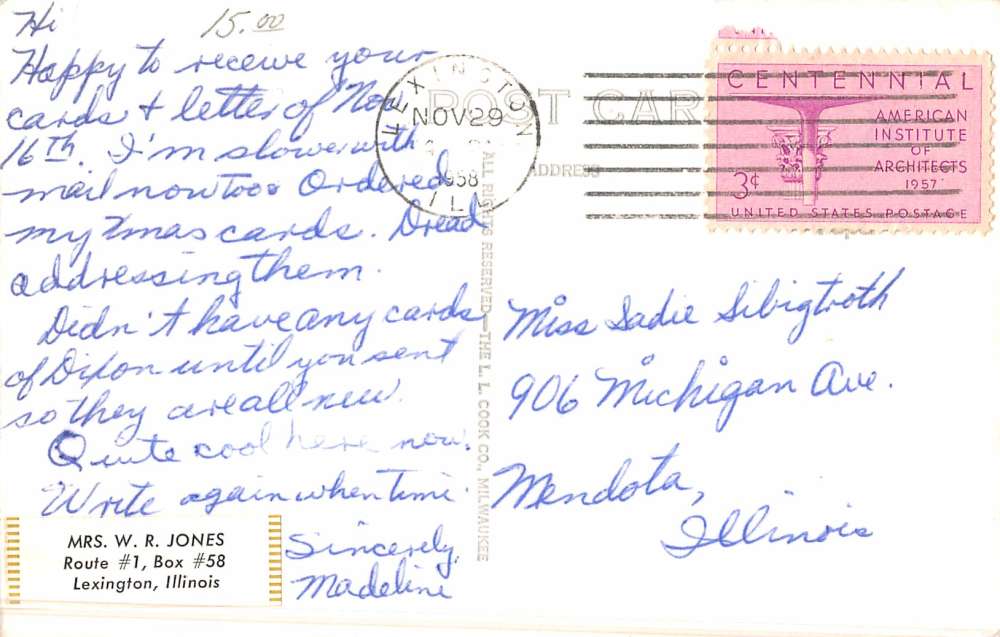 Hi
15.00
Happy to receive your
cards & letter of Nov
16th. I'm slower with
mail now too. Ordered
my Xmas cards. Dread
addressing them.
Didn't have any cards
of Dixon until you sent
so they are all new.
Quite cool here now.
Write again when time.
Sincerely,
Madeline
MRS. W. R. JONES
Route #1, Box #58
Lexington, Illinois
POST CAR
ADDRESS
LEXINGTON
NOV 29
1958
ILL
ALL RIGHTS RESERVED—THE L. L. COOK CO., MILWAUKEE
CENTENNIAL
AMERICAN
INSTITUTE
OF
ARCHITECTS
1957
3¢
UNITED STATES POSTAGE
Miss Sadie Sibigtroth
906 Michigan Ave.
Mendota,
Illinois